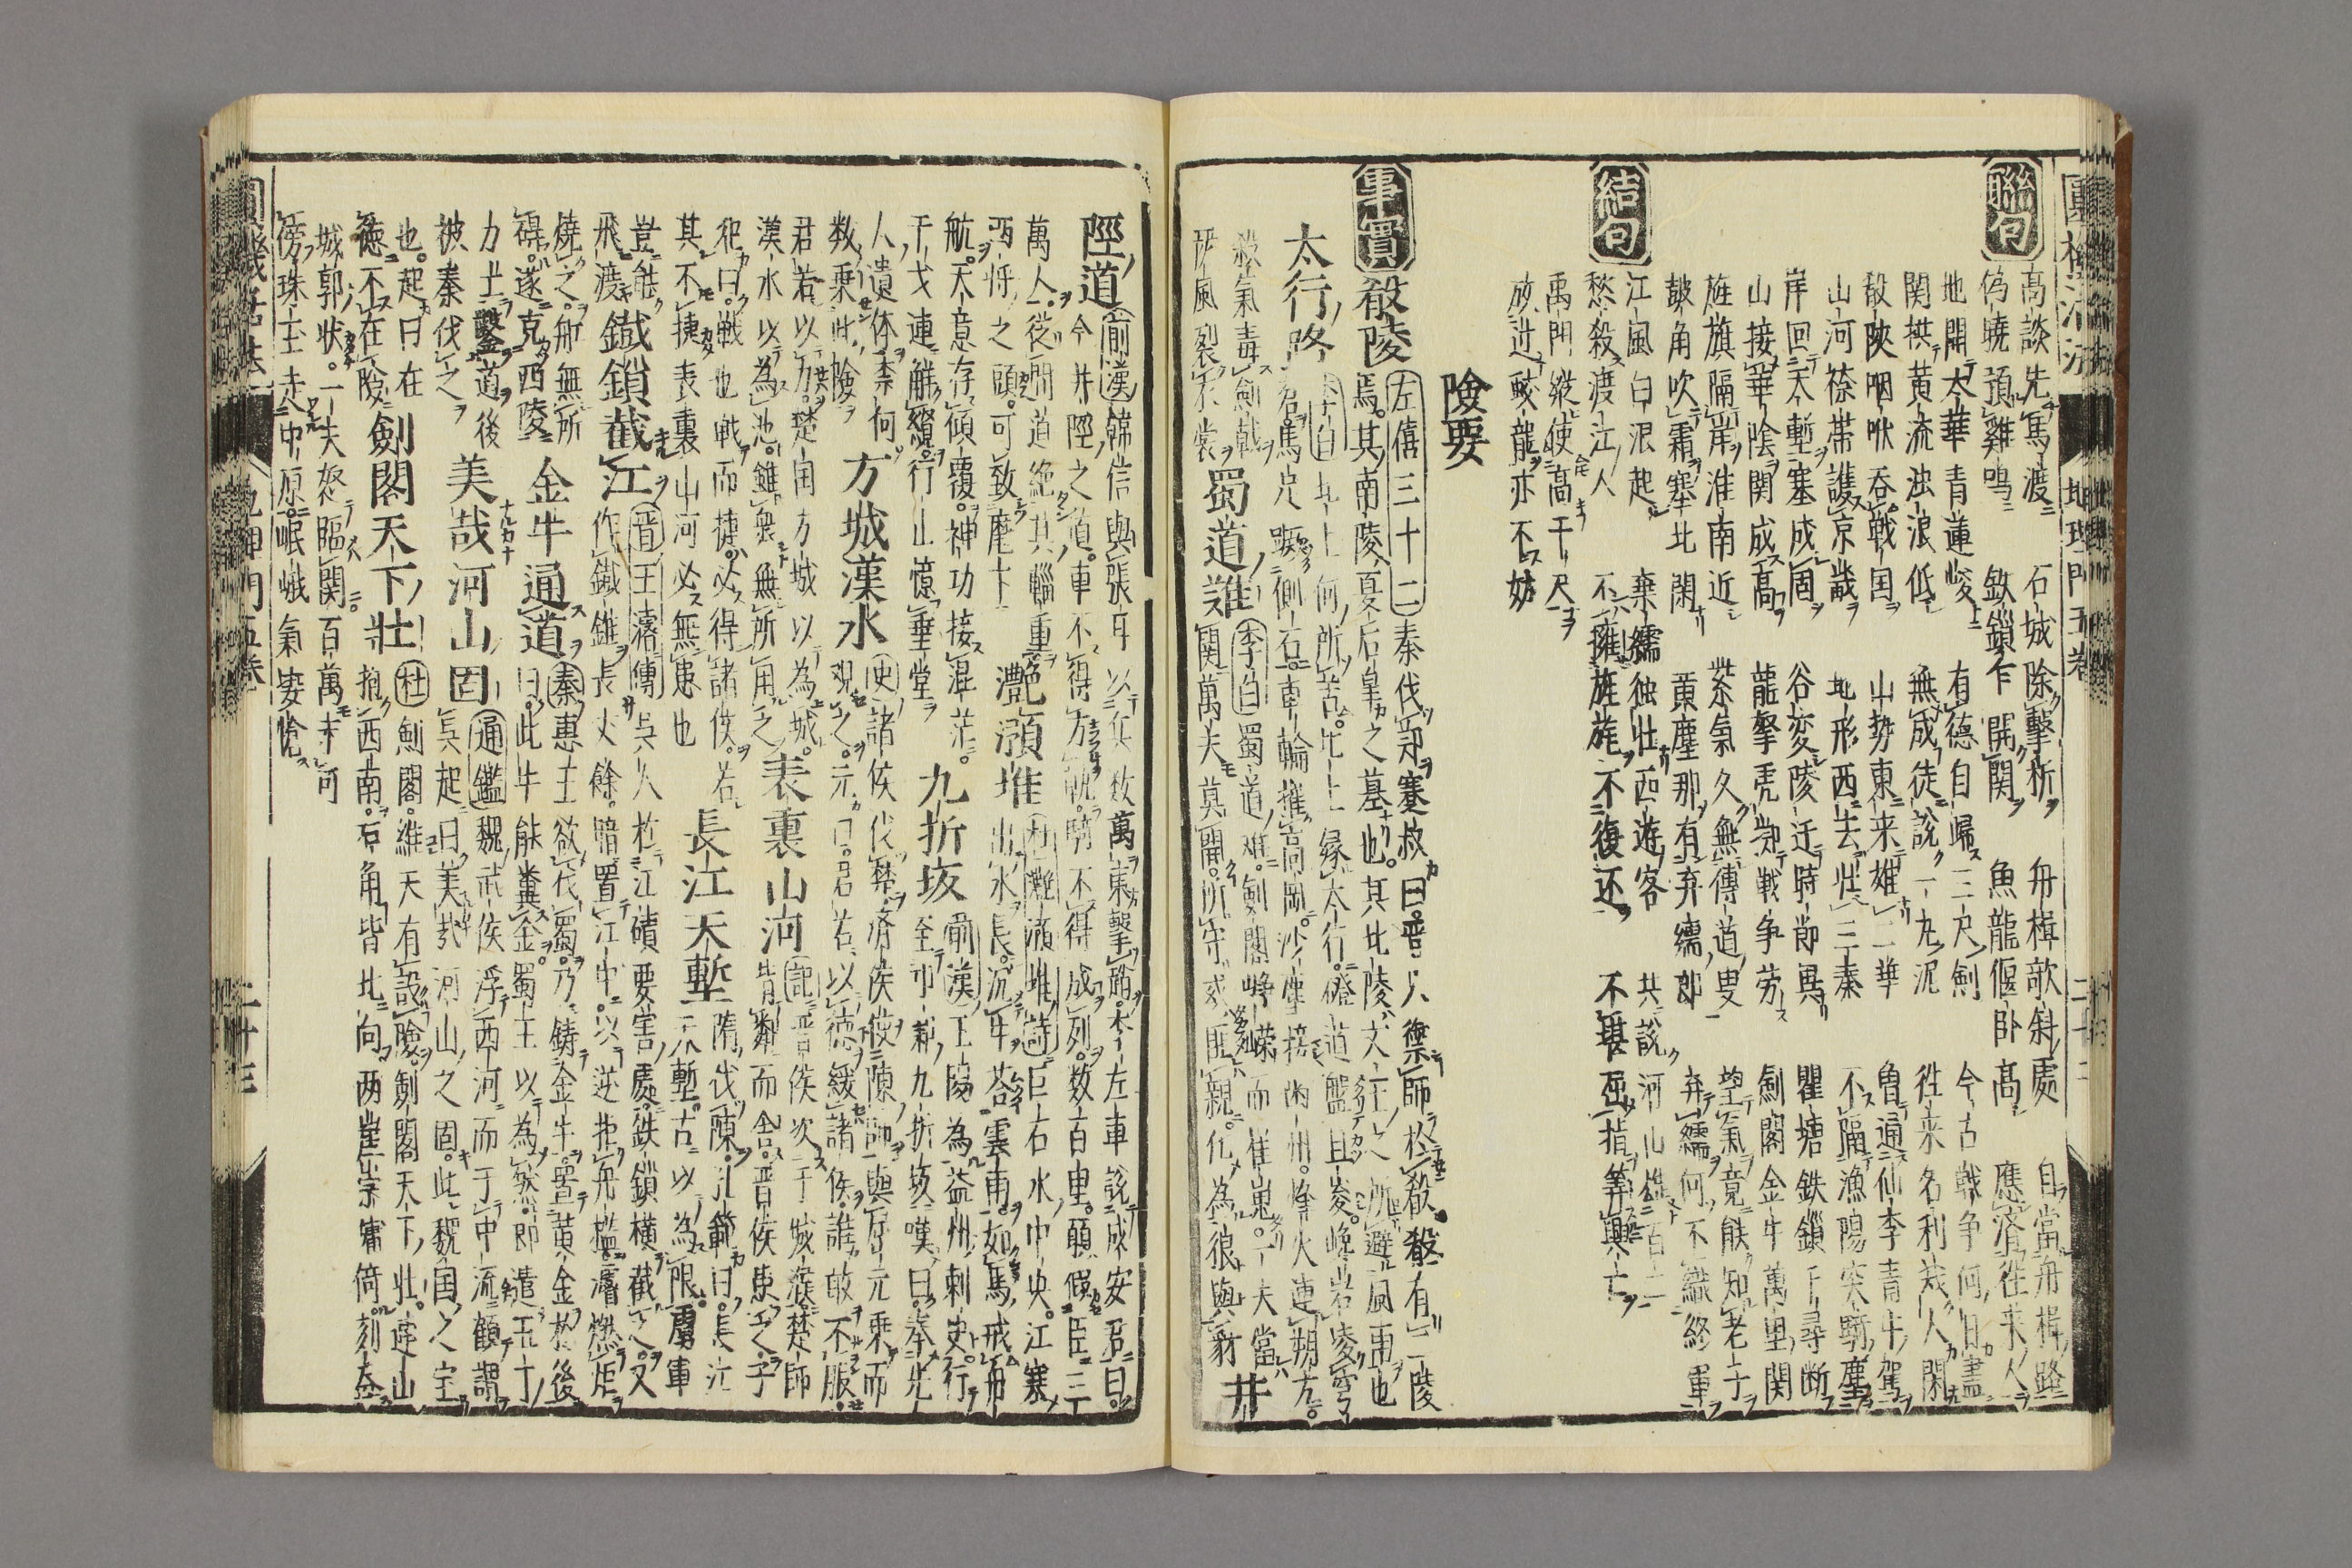 聯句
高談先馬渡 石城除擊柝 舟楫欹斜處 自當舟楫路
偽曉預雞鳴 鉄鎖乍開関 魚龍偃卧高 應済徃来人
地開太華青蓮峻 有德自歸三尺劍 今古戰争何日盡
関拱黄流浊浪低 無成徒說一丸泥 徃来名利幾人閑
殽陜咽喉吞戰国 山勢東来雄二華 魯通仙李青牛駕
山河襟帶護京畿 地形西去壮三秦 不隔漁陽突騎塵
岸回天塹塞成固 谷変陵迁時節異 瞿塘鉄鎖千尋断
山接華陰関成高 龍拏虎擲戦争労 劍閣金牛萬里関
旌旗隔岸淮南近 紫氣久無傳道叟 望氣竟能知老子
皷角吹霜塞北閑 黄塵那有弃繻郎 弃繻何不識終軍
結句
江風白浪起 棄繻独壮西遊客 共說河山雄百二
愁殺渡江人 不擁旌旄不復还 不堪屈指筭興亡
禹門縱使高千尺
放过蛟龍亦不妨
險要
事實
殽陵 左僖三十二 秦伐郑蹇叔曰晋人禦師於殽殽有二陵
焉其南陵夏后皐之墓也其北陵文王之所避風雨也
太行路 李白 北上何所苦北上緣太行磴道盤且峻巉岩凌穹
蒼馬足蹶側石車輪摧高岡沙塵接幽州烽火連朔方
殺氣毒劍戟 嚴風裂衣裳 蜀道難 李白 蜀道难劍閣崢嶸而崔嵬一夫當
関萬夫莫開所守或匪親化為狼與豺 井
陘道 前漢 韓信與張耳以兵数萬東擊趙李左車說成安君曰
今井陘之道車不得方軌騎不得成列数百里願假臣三
萬人從間道絶其輜重 灔澦堆 杜灔澦堆詩 巨石水中央江寒
出水長沉牛荅雲雨如馬戒舟
航天意存傾覆神功接混茫
干戈連觧纜行止憶垂堂 九折坂 前漢 王陽為益州刺史行
至邛郲九折坂嘆曰奉先
人遺体柰何
数乗此險 方城漢水 史 諸侯伐楚済侯使陳師與屈元乗而
覌之元曰君若以德綏諸侯誰敢不服
君若以力楚国方城以為城
漢水以為池雖衆無所用之 表裏山河 記 晋侯次于城濮楚師
背酅而舎晋侯患之子
犯曰戦也戦而捷必得諸侯若
其不捷表裏山河必無患也 長江天塹 隋伐陳孔範曰長江
天塹古以為限虜軍
豈能
飛渡 鐵鎖截江 晋王濬傳 呉人於江磧要害處鉄鎖横截之又
作鐵錐長丈餘暗置江中以逆拒舟檻濬燃炬
燒之舟無所
碍遂克西陵 金牛通道 秦 惠王欲伐蜀乃鋳金牛置黄金於後
曰此牛能糞金蜀王以為然即遣五丁
力士鑿道後
被秦伐之 美哉河山固 通鑑 魏武侯浮西河而于中流顧謂
呉起曰美哉河山之固此魏国之宝
也起曰在
德不在險 劍閣天下壮 杜 劍閣維天有設險劍閣天下壮連山
抱西南石角皆北向两崖崇墉倚刻𦘕
城郭状一夫怒臨関百萬未可
傍珠玉走中原岷峨氣凄愴